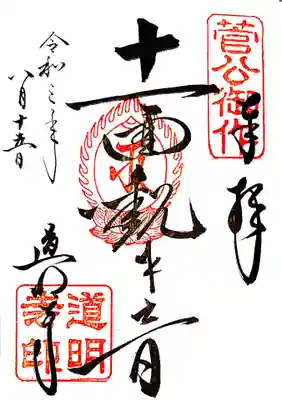 菅公御作
奉拝
十一面観世音
令和三年
八月十五日
道明寺
道明
寺印